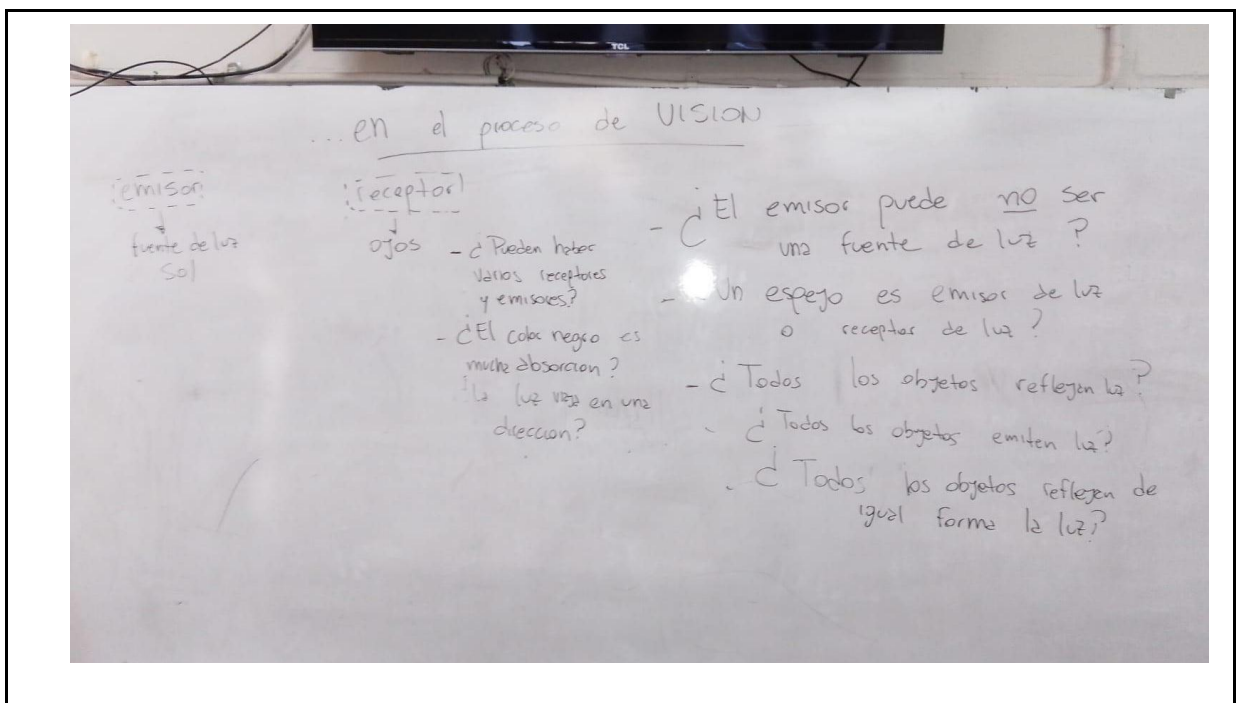 TCL
...en el proceso de VISION
emisor
fuente de luz
Sol
receptor
ojos
- ¿Pueden haber
varios receptores
y emisores?
- ¿El color negro es
mucha absorcion?
la luz viaja en una
direccion?
- ¿El emisor puede no ser
una fuente de luz?
- Un espejo es emisor de luz
o receptor de luz?
- ¿Todos los objetos reflejan luz?
- ¿Todos los objetos emiten luz?
- ¿Todos los objetos reflejen de
igual forma la luz?